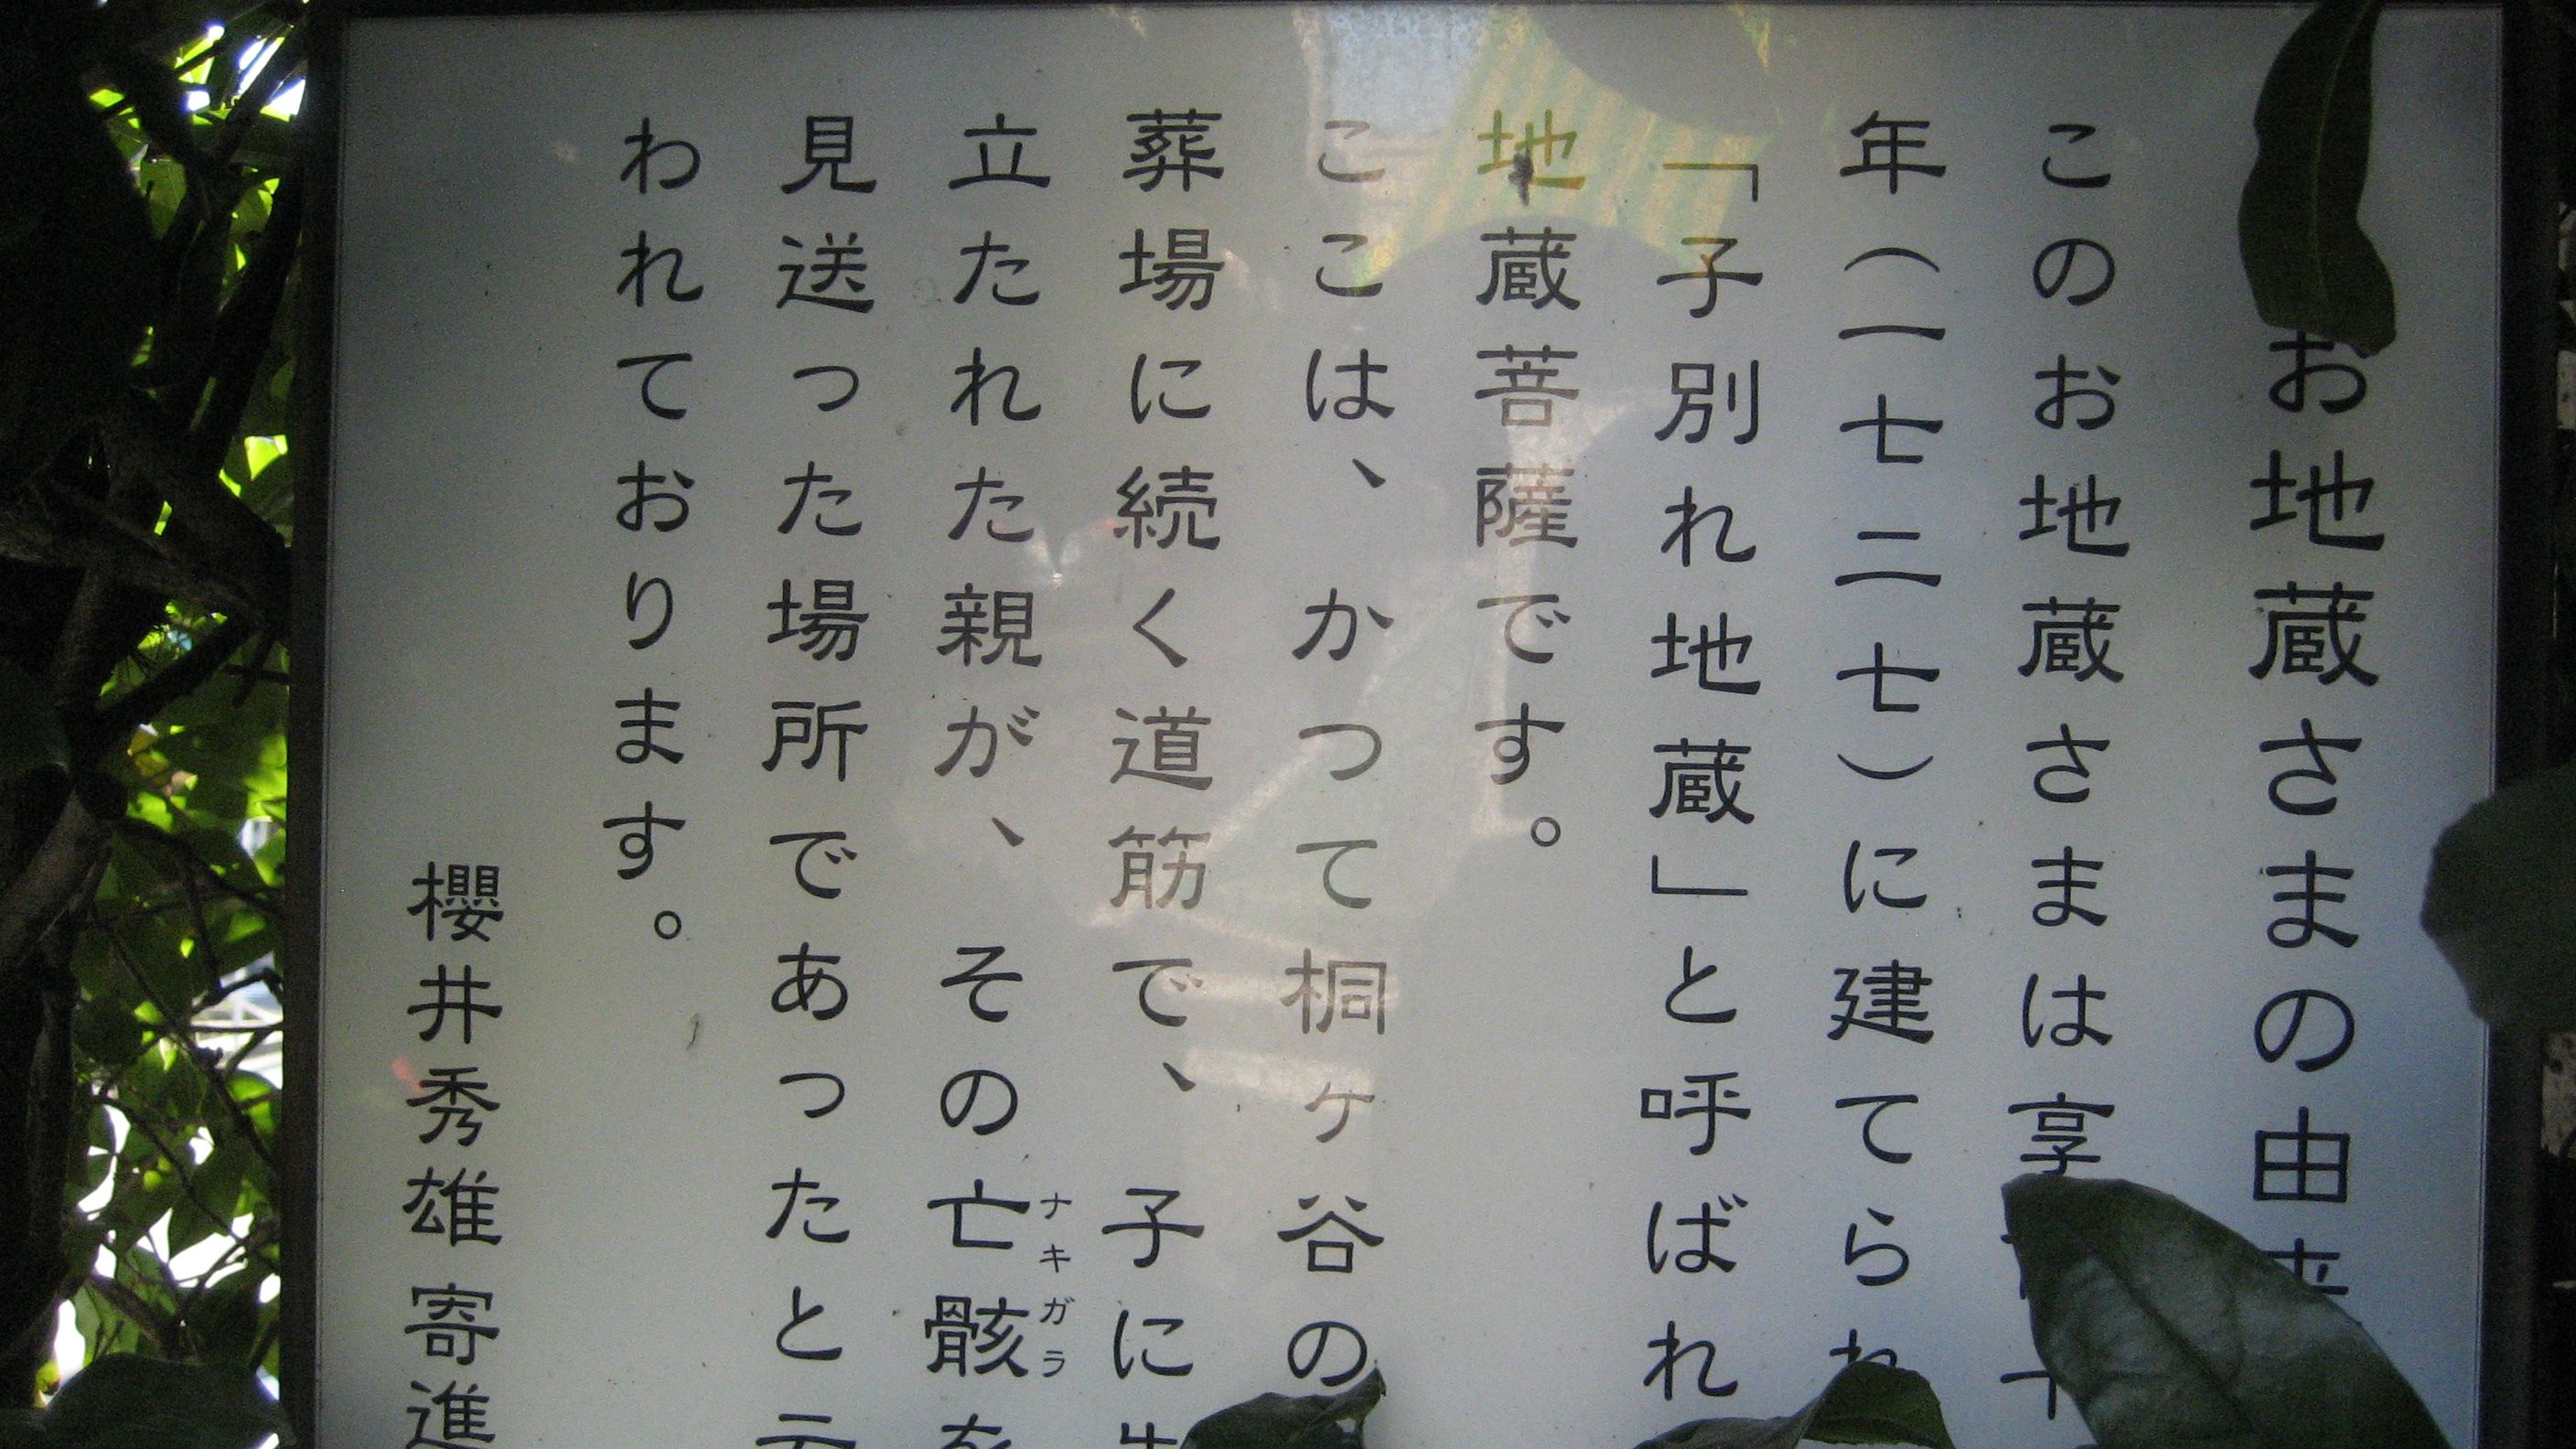 お地蔵さまの由来
このお地蔵さまは享
年(一七二七)に建てられ
「子別れ地蔵」と呼ばれ
地蔵菩薩です。
ここは、かつて桐ヶ谷の
葬場に続く道筋で、子に先
立たれた親が、その亡骸を
ナキガラ
見送った場所であったと云
われております。
櫻井秀雄 寄進